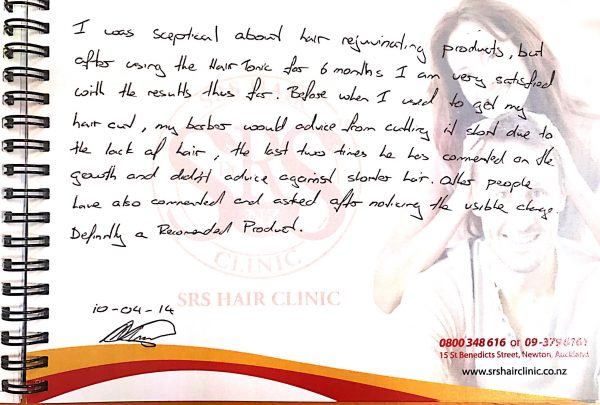 I was sceptical about hair rejuvinating products, but
after using the Hair Tonic for 6 months I am very satisfied
with the results thus far. Before when I used to get my
hair cut, my barber would advice from cutting it short due to
the lack of hair, the last two times he has commented on the
growth and didn't advice against shorter hair. Other people
have also commented and asked after noticing the visible change.
Definitly a Recomended Product.
SRS
CLINIC
SRS HAIR CLINIC
10-04-14
0800 348 616 or 09-379 8761
15 St Benedicts Street, Newton, Auckland
www.srshairclinic.co.nz